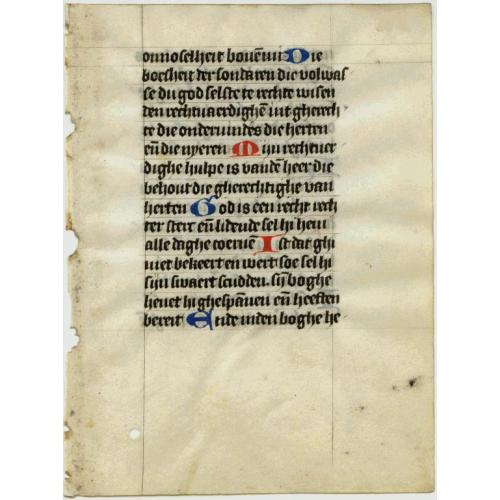 onnoselheit bouē mi Die
boesheit der sondaren die volwas
se du god selste te rechte wisen
den rechtuaerdighē uut gherech
te die ondervindes die herten
eñ die nyeren Mijn rechtuer
dighe hulpe is vandē heer die
behout die gherechtighe van
herten God is een recht rech
ter sterc eñ lidende sel hi hem
alle daghe toernē Ist dat ghi
niet bekeert en wert soe sel hi
sijn swaert scudden sijn boghe
heuet hi ghespānen eñ heeften
bereit Ende in den boghe he